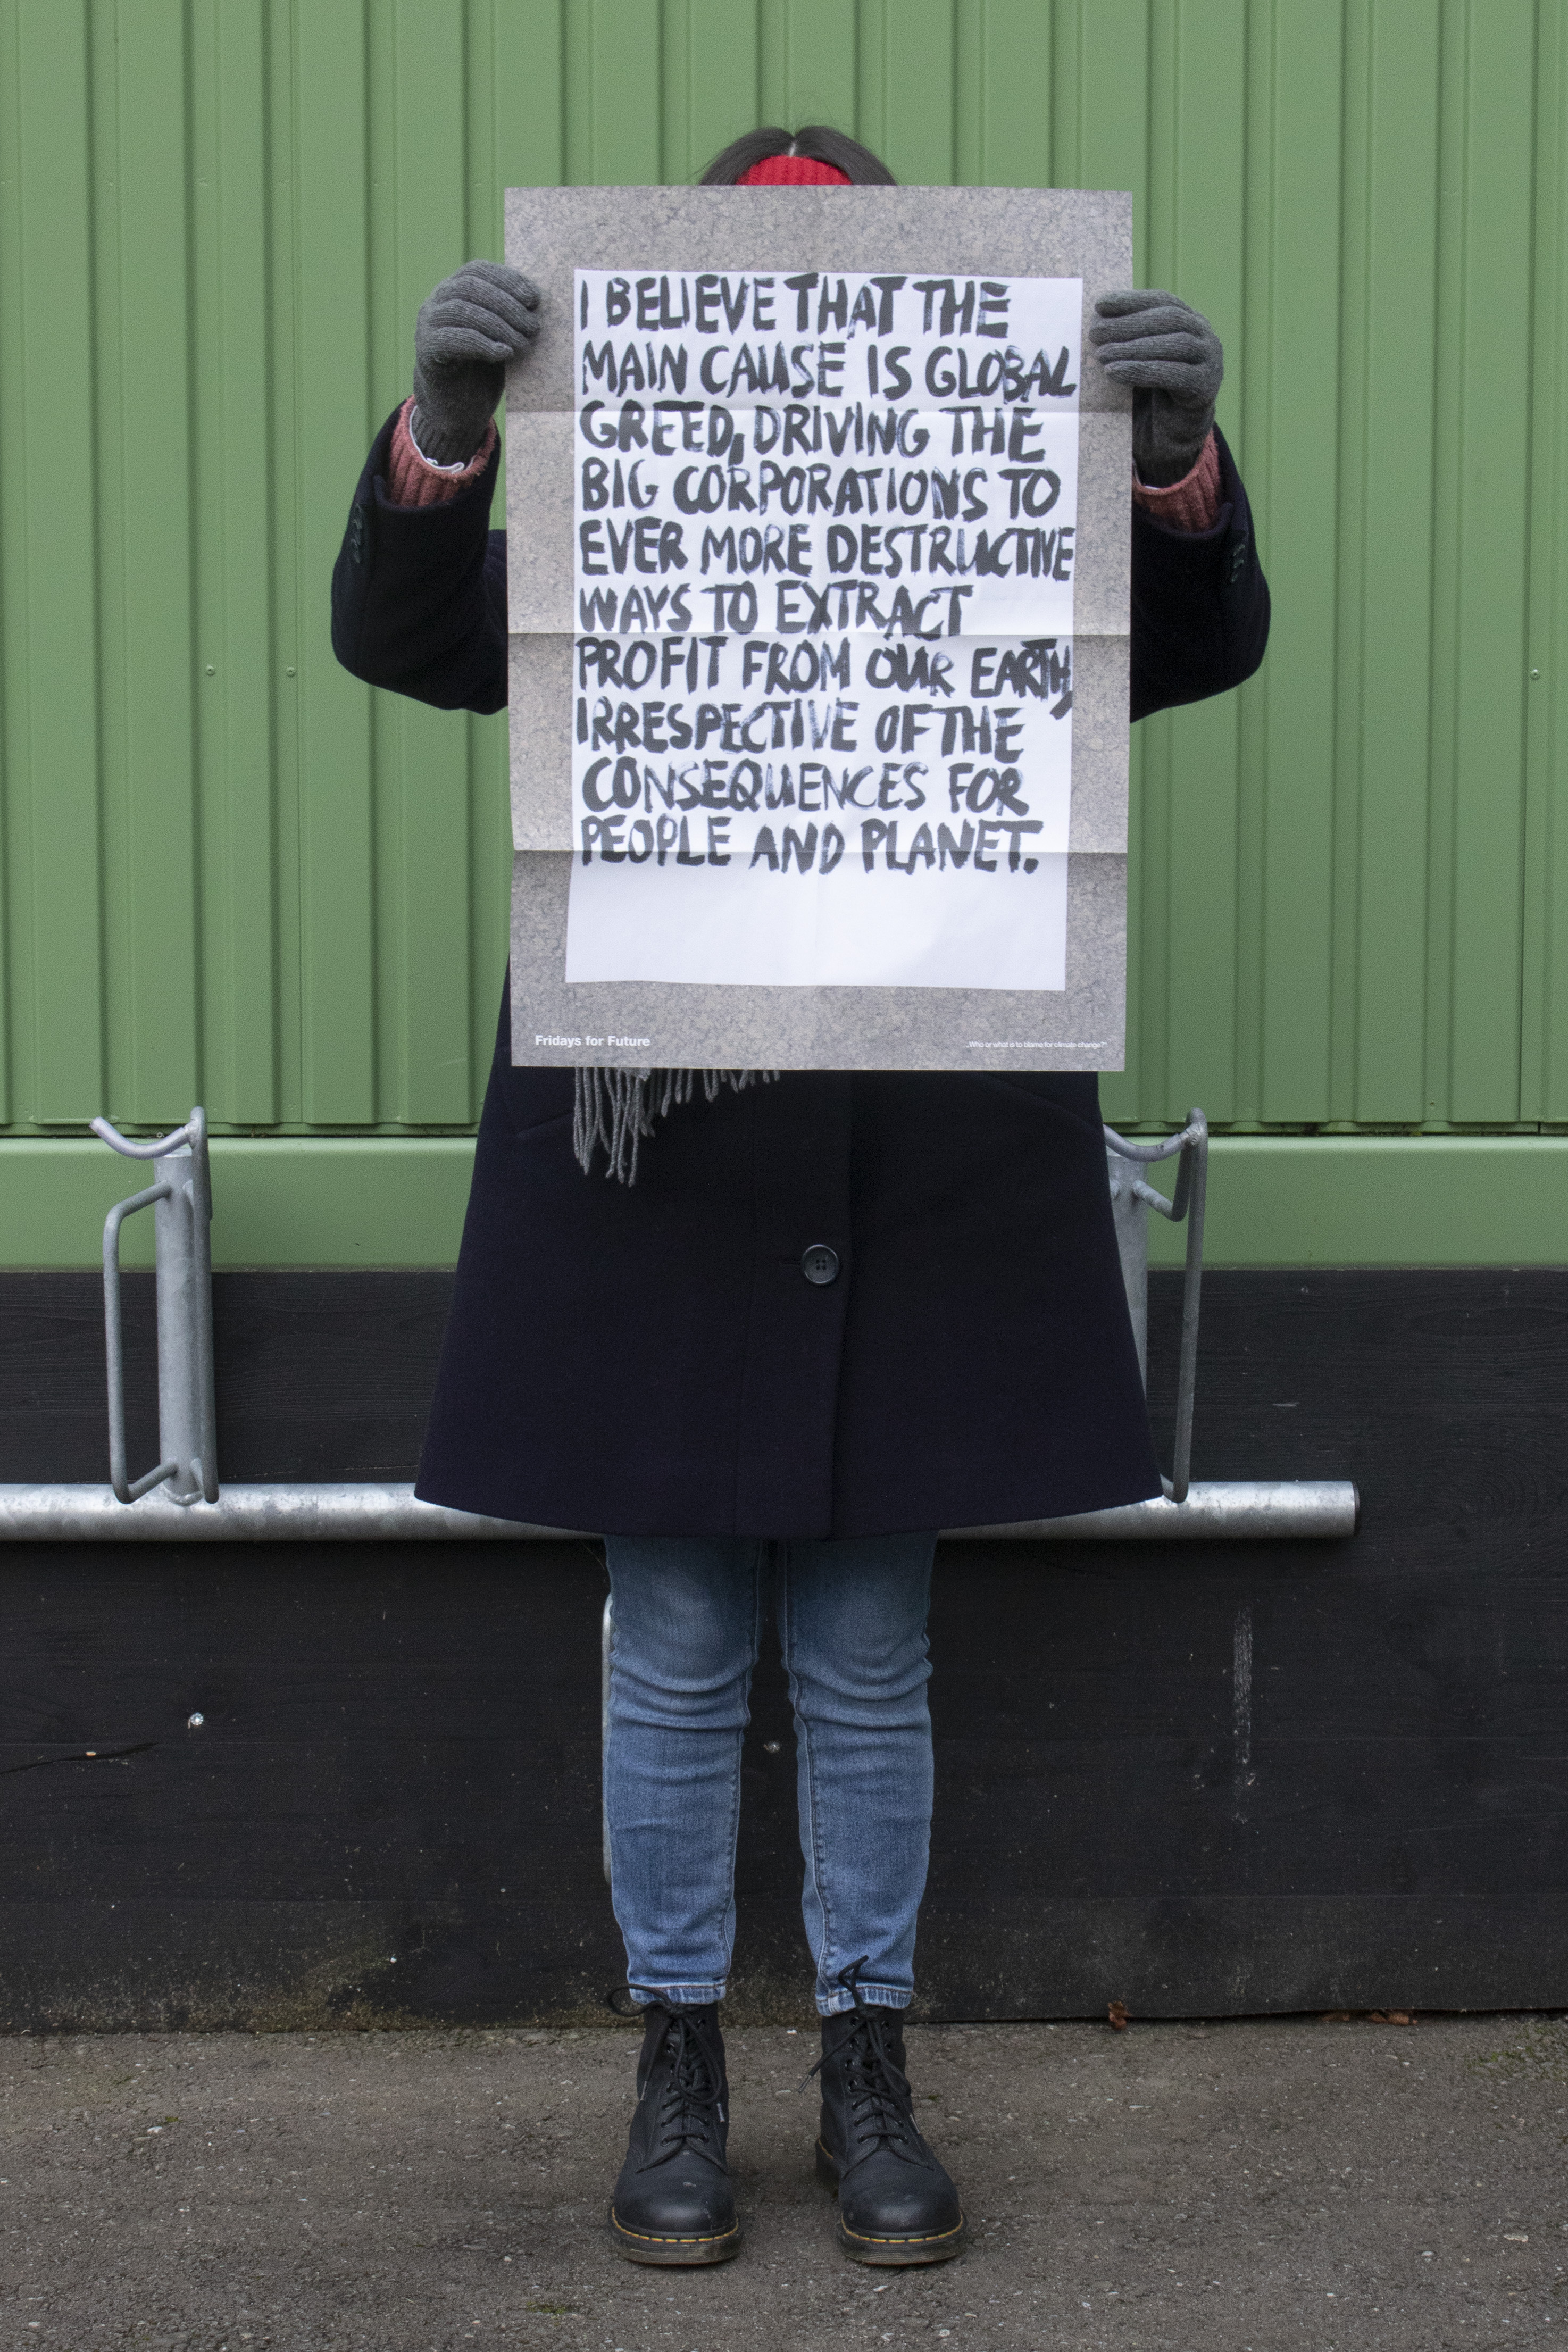 I BELIEVE THAT THE
MAIN CAUSE IS GLOBAL
GREED, DRIVING THE
BIG CORPORATIONS TO
EVER MORE DESTRUCTIVE
WAYS TO EXTRACT
PROFIT FROM OUR EARTH,
IRRESPECTIVE OF THE
CONSEQUENCES FOR
PEOPLE AND PLANET.
Fridays for Future
„Who or what is to blame for climate change?“